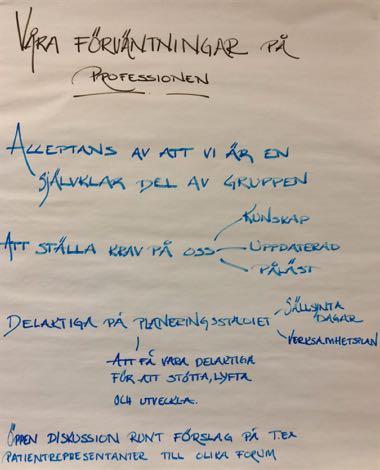 VÅRA FÖRVÄNTNINGAR PÅ
PROFESSIONEN
ACCEPTANS AV ATT VI ÄR EN
SJÄLVKLAR DEL AV GRUPPEN
KUNSKAP
ATT STÄLLA KRAV PÅ OSS
UPPDATERAD
PÅLÄST
DELAKTIGA PÅ PLANERINGSSTADIET
SÄLLSYNTA
DAGAR
VERKSAMHETSPLAN
ATT FÅ VARA DELAKTIGA
FÖR ATT STÖTTA, LYFTA
OCH UTVECKLA.
ÖPPEN DISKUSSION RUNT FÖRSLAG PÅ T.EX
PATIENTREPRESENTANTER TILL OLIKA FORUM